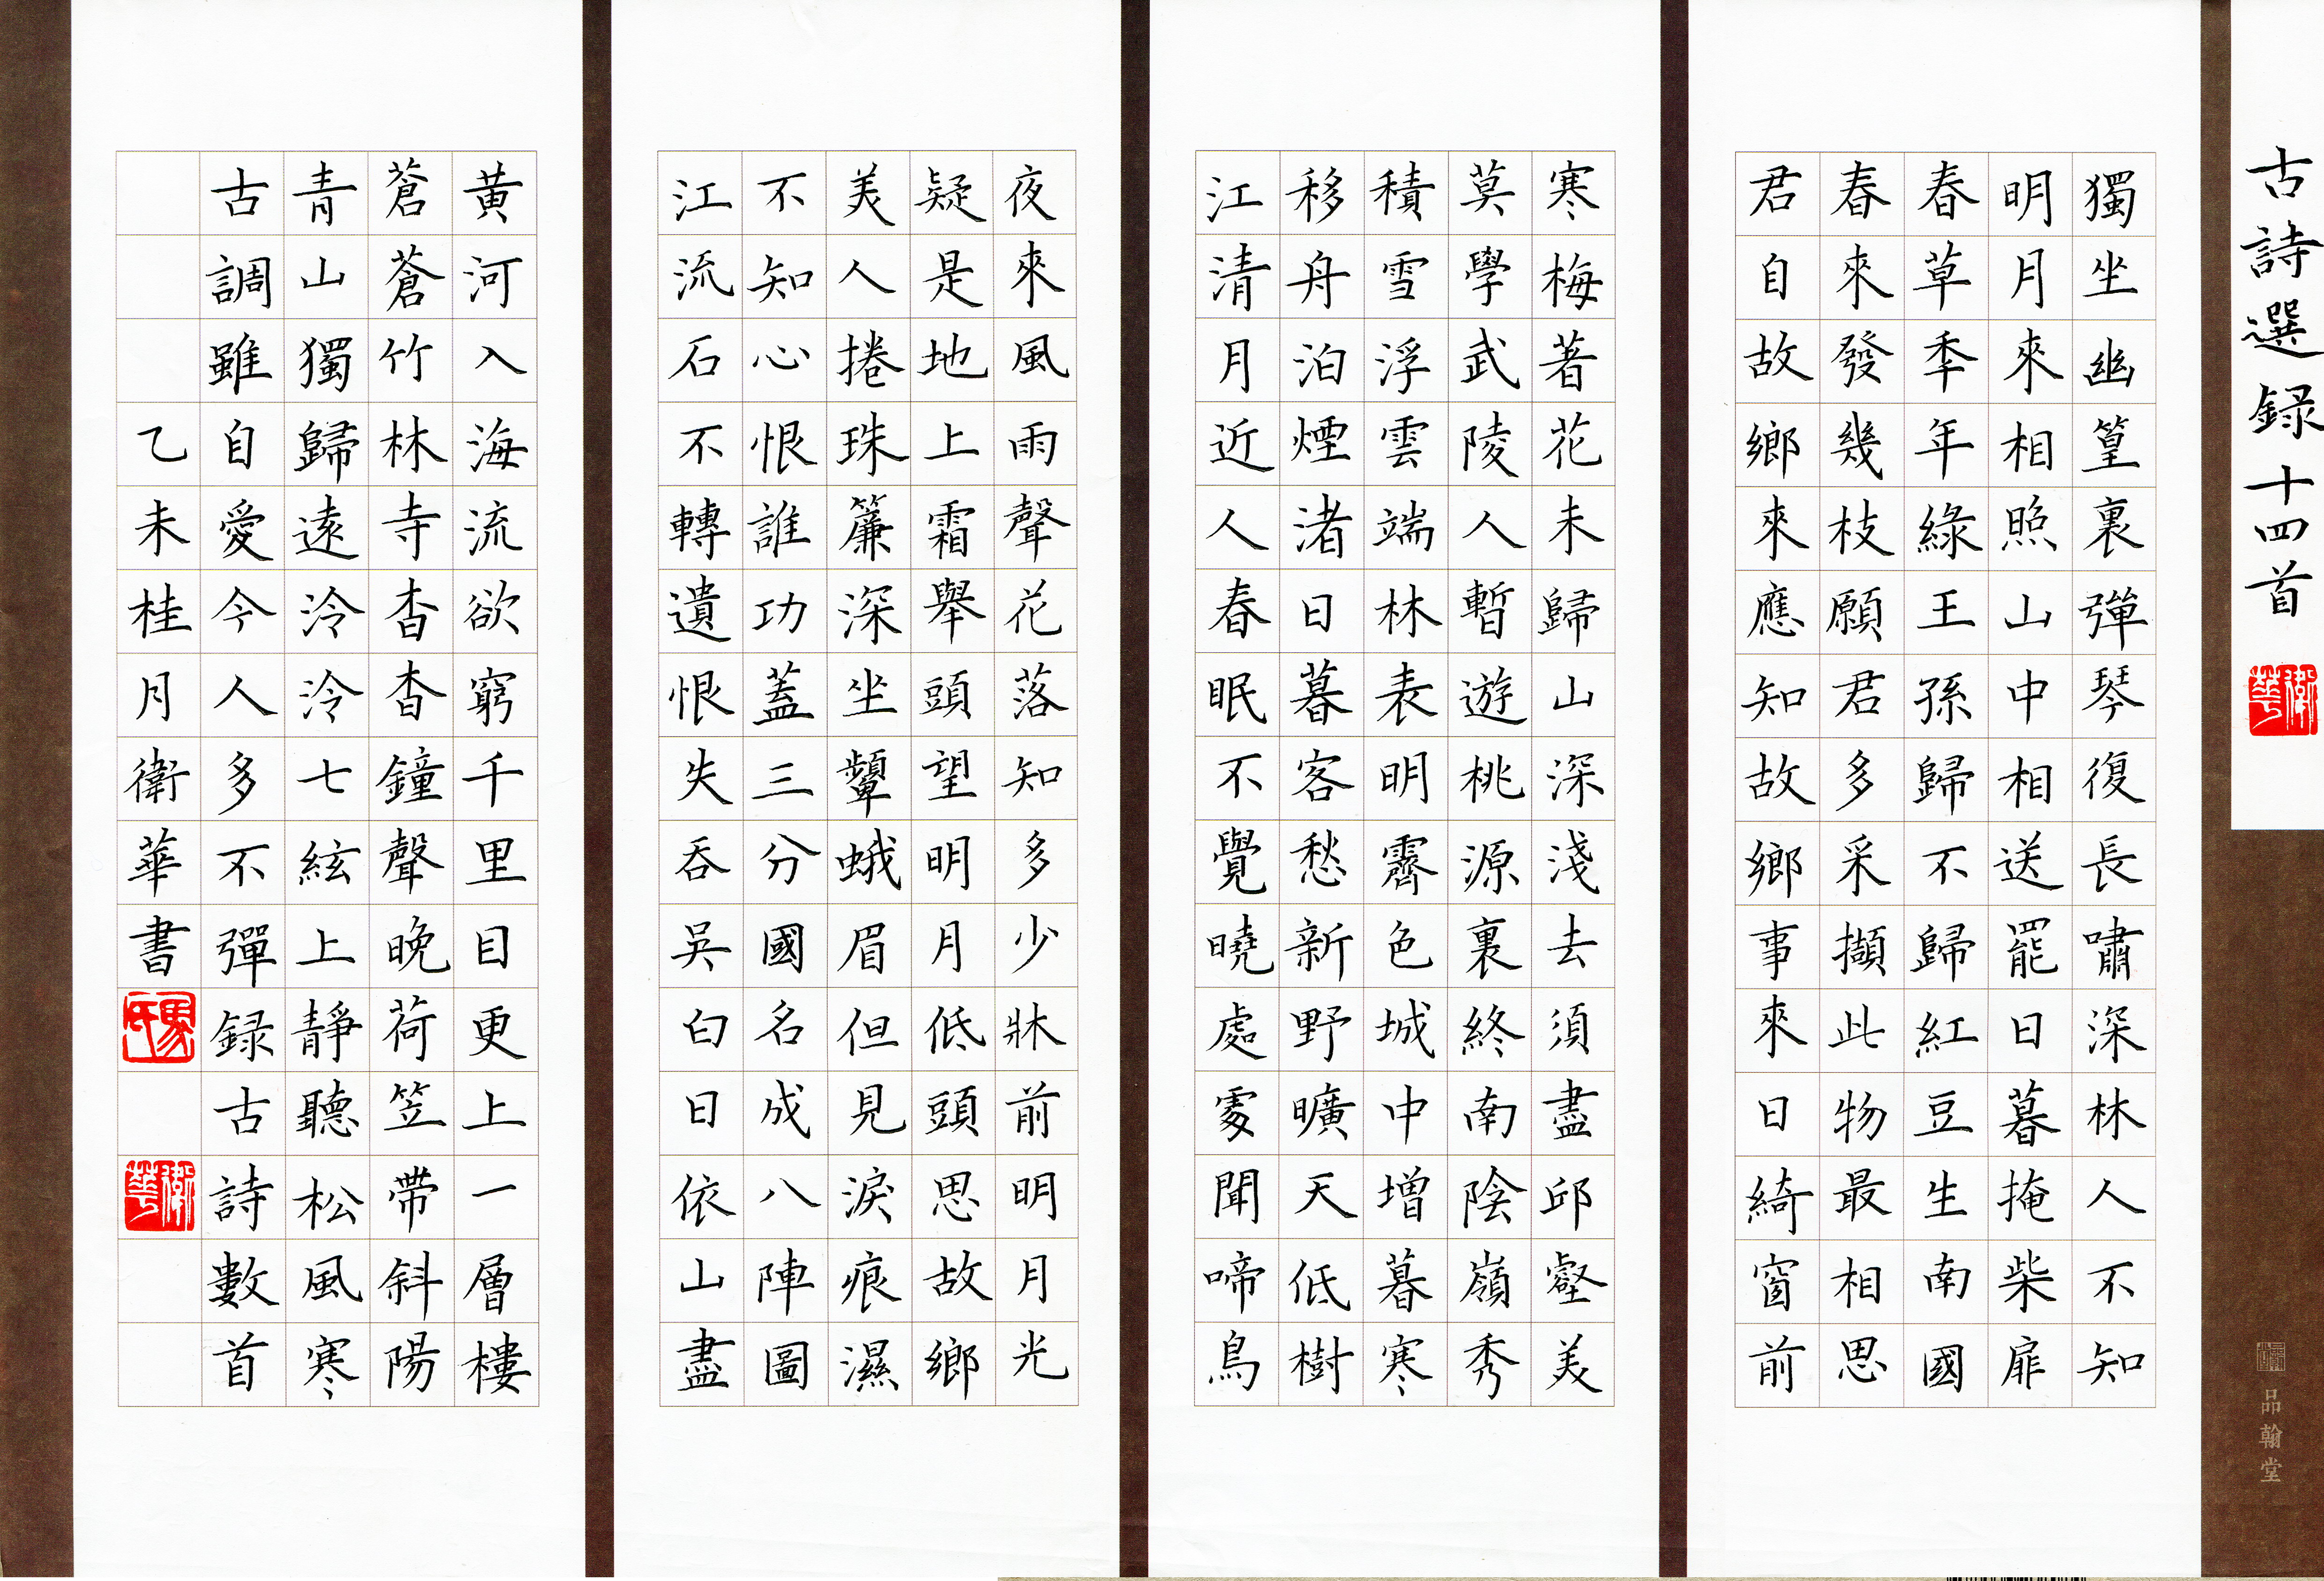 古詩選録十四首
衛華
獨坐幽篁裏彈琴復長嘯深林人不知
明月來相照山中相送罷日暮掩柴扉
春草秊年綠王孫歸不歸紅豆生南國
春來發幾枝願君多采擷此物最相思
君自故鄉來應知故鄉事來日綺窗前
寒梅著花未歸山深淺去須盡邱壑美
莫學武陵人暫遊桃源裏終南陰嶺秀
積雪浮雲端林表明霽色城中增暮寒
移舟泊煙渚日暮客愁新野曠天低樹
江清月近人春眠不覺曉處䖏聞啼鳥
夜來風雨聲花落知多少牀前明月光
疑是地上霜舉頭望明月低頭思故鄉
美人捲珠簾深坐顰蛾眉但見淚痕濕
不知心恨誰功蓋三分國名成八陣圖
江流石不轉遺恨失吞吳白日依山盡
黃河入海流欲窮千里目更上一層樓
蒼蒼竹林寺杳杳鐘聲晚荷笠帶斜陽
青山獨歸遠泠泠七絃上靜聽松風寒
古調雖自愛今人多不彈録古詩數首
乙未桂月衛華書
馬氏
衛華
品翰堂